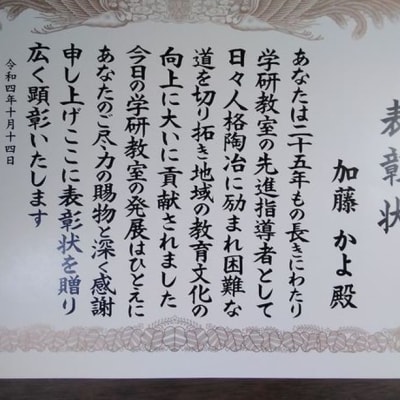 表彰状
加藤 かよ殿
あなたは二十五年もの長きにわたり
学研教室の先進指導者として
日々人格陶冶に励まれ困難な
道を切り拓き地域の教育文化の
向上に大いに貢献されました
今日の学研教室の発展はひとえに
あなたのご尽力の賜物と深く感謝
申し上げここに表彰状を贈り
広く顕彰いたします
令和四年十月十四日